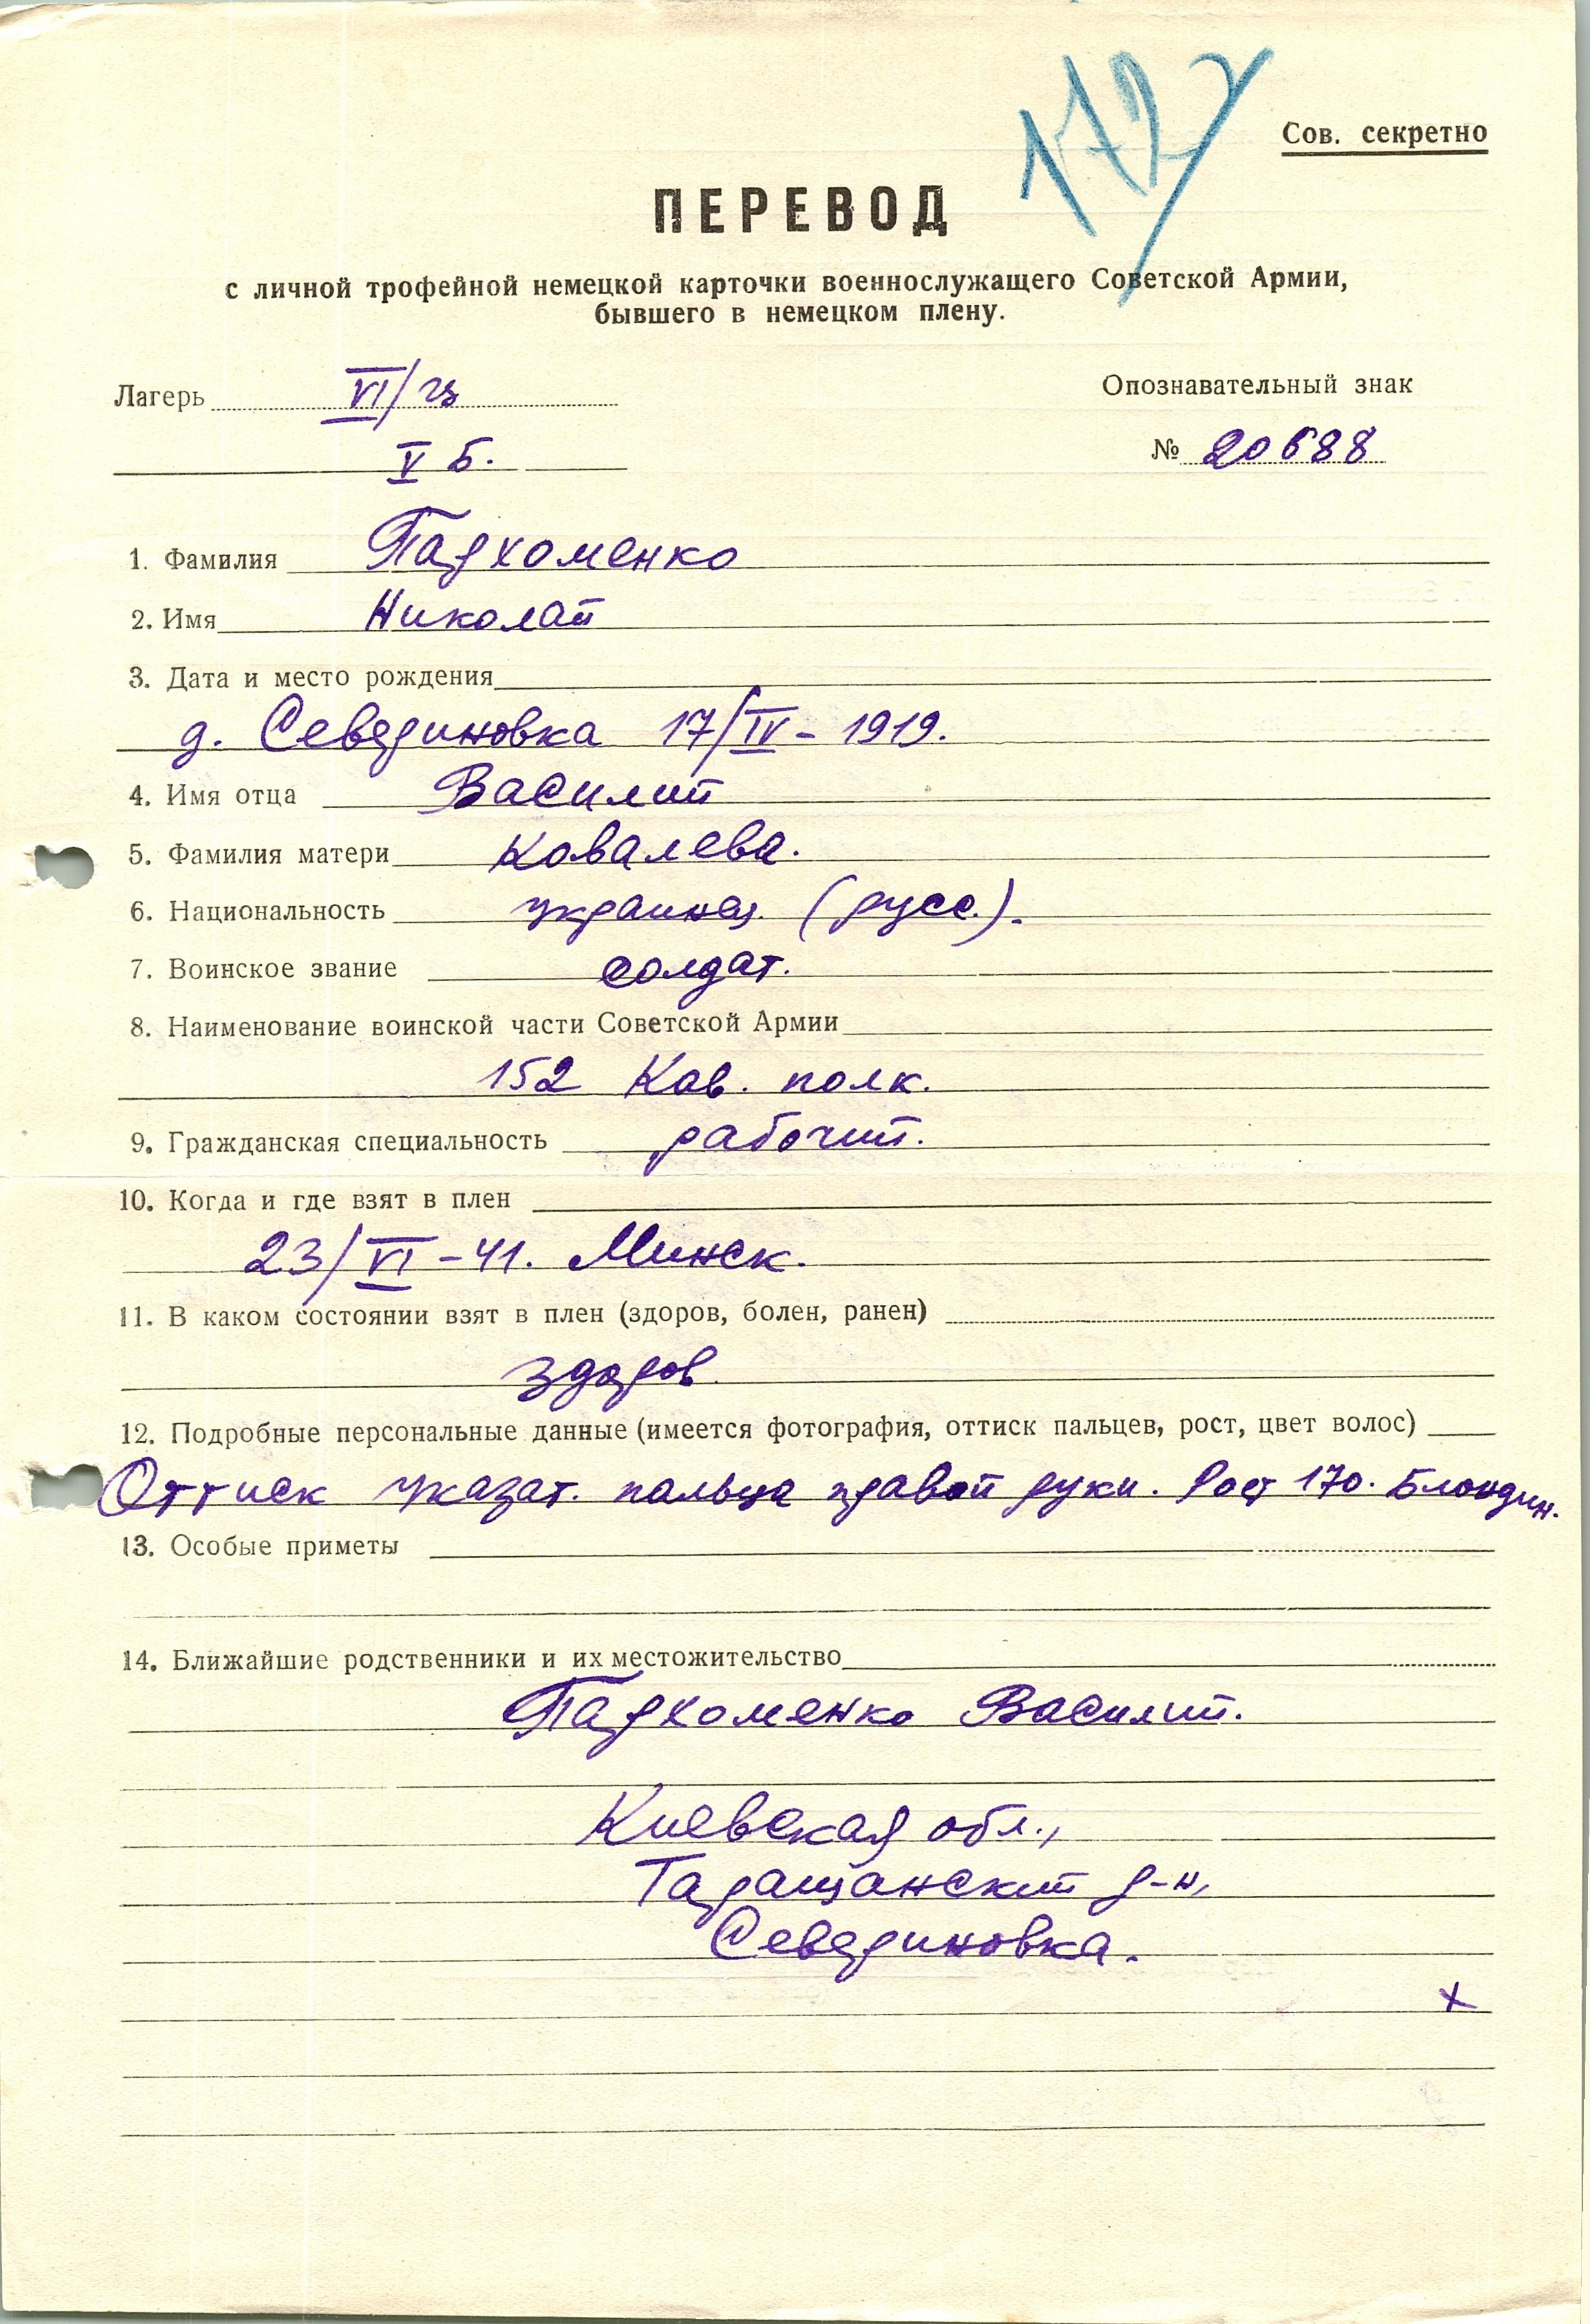 172
Сов. секретно
ПЕРЕВОД
с личной трофейной немецкой карточки военнослужащего Советской Армии,
бывшего в немецком плену.
Лагерь VI/
Опознавательный знак
V Б.
№ 20688
1. Фамилия Пархоменко
2. Имя Николай
3. Дата и место рождения
д. Севериновка 17/IV - 1919.
4. Имя отца Василий
5. Фамилия матери Ковалева.
6. Национальность украинец (русс.).
7. Воинское звание солдат.
8. Наименование воинской части Советской Армии
152 Кав. полк.
9. Гражданская специальность рабочий.
10. Когда и где взят в плен
23/VI - 41. Минск.
11. В каком состоянии взят в плен (здоров, болен, ранен)
здоров.
12. Подробные персональные данные (имеется фотография, оттиск пальцев, рост, цвет волос)
Оттиск указат. пальца правой руки. Рост 170. Блондин.
13. Особые приметы
14. Ближайшие родственники и их местожительство
Пархоменко Василий.
Киевская обл.,
Таращанский р-н,
Севериновка.
х